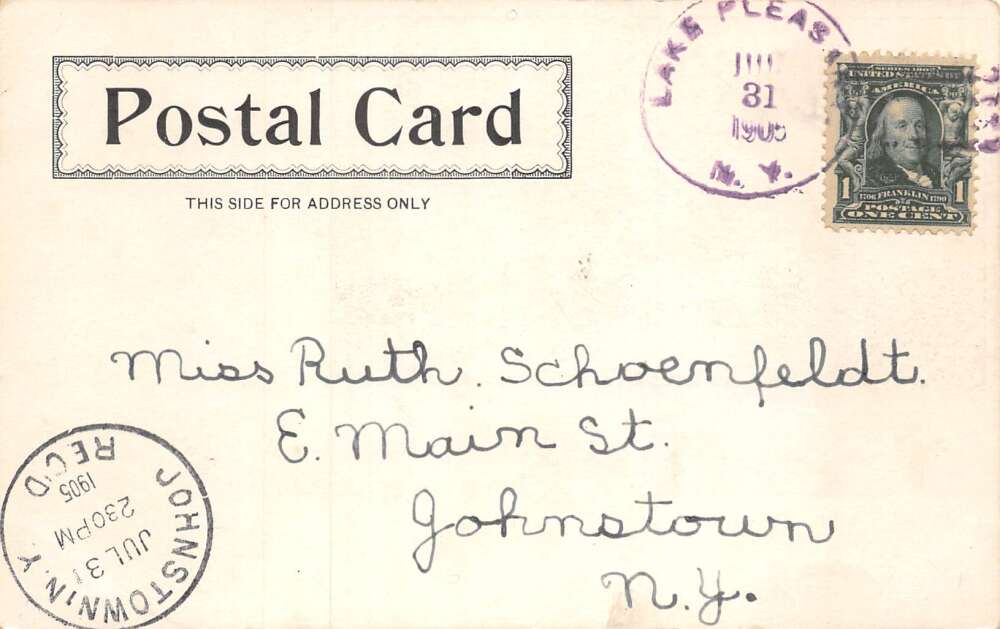 Postal Card
THIS SIDE FOR ADDRESS ONLY
LAKE PLEAS
31
1905
N. Y.
SERIES 1902
UNITED STATES OF
AMERICA
1 1706 FRANKLIN 1790 1
POSTAGE
ONE CENT
Miss Ruth. Schoenfeldt.
E. Main St.
Johnstown
N.Y.
JOHNSTOWN, N.Y.
JUL 31
230 PM
1905
REC'D